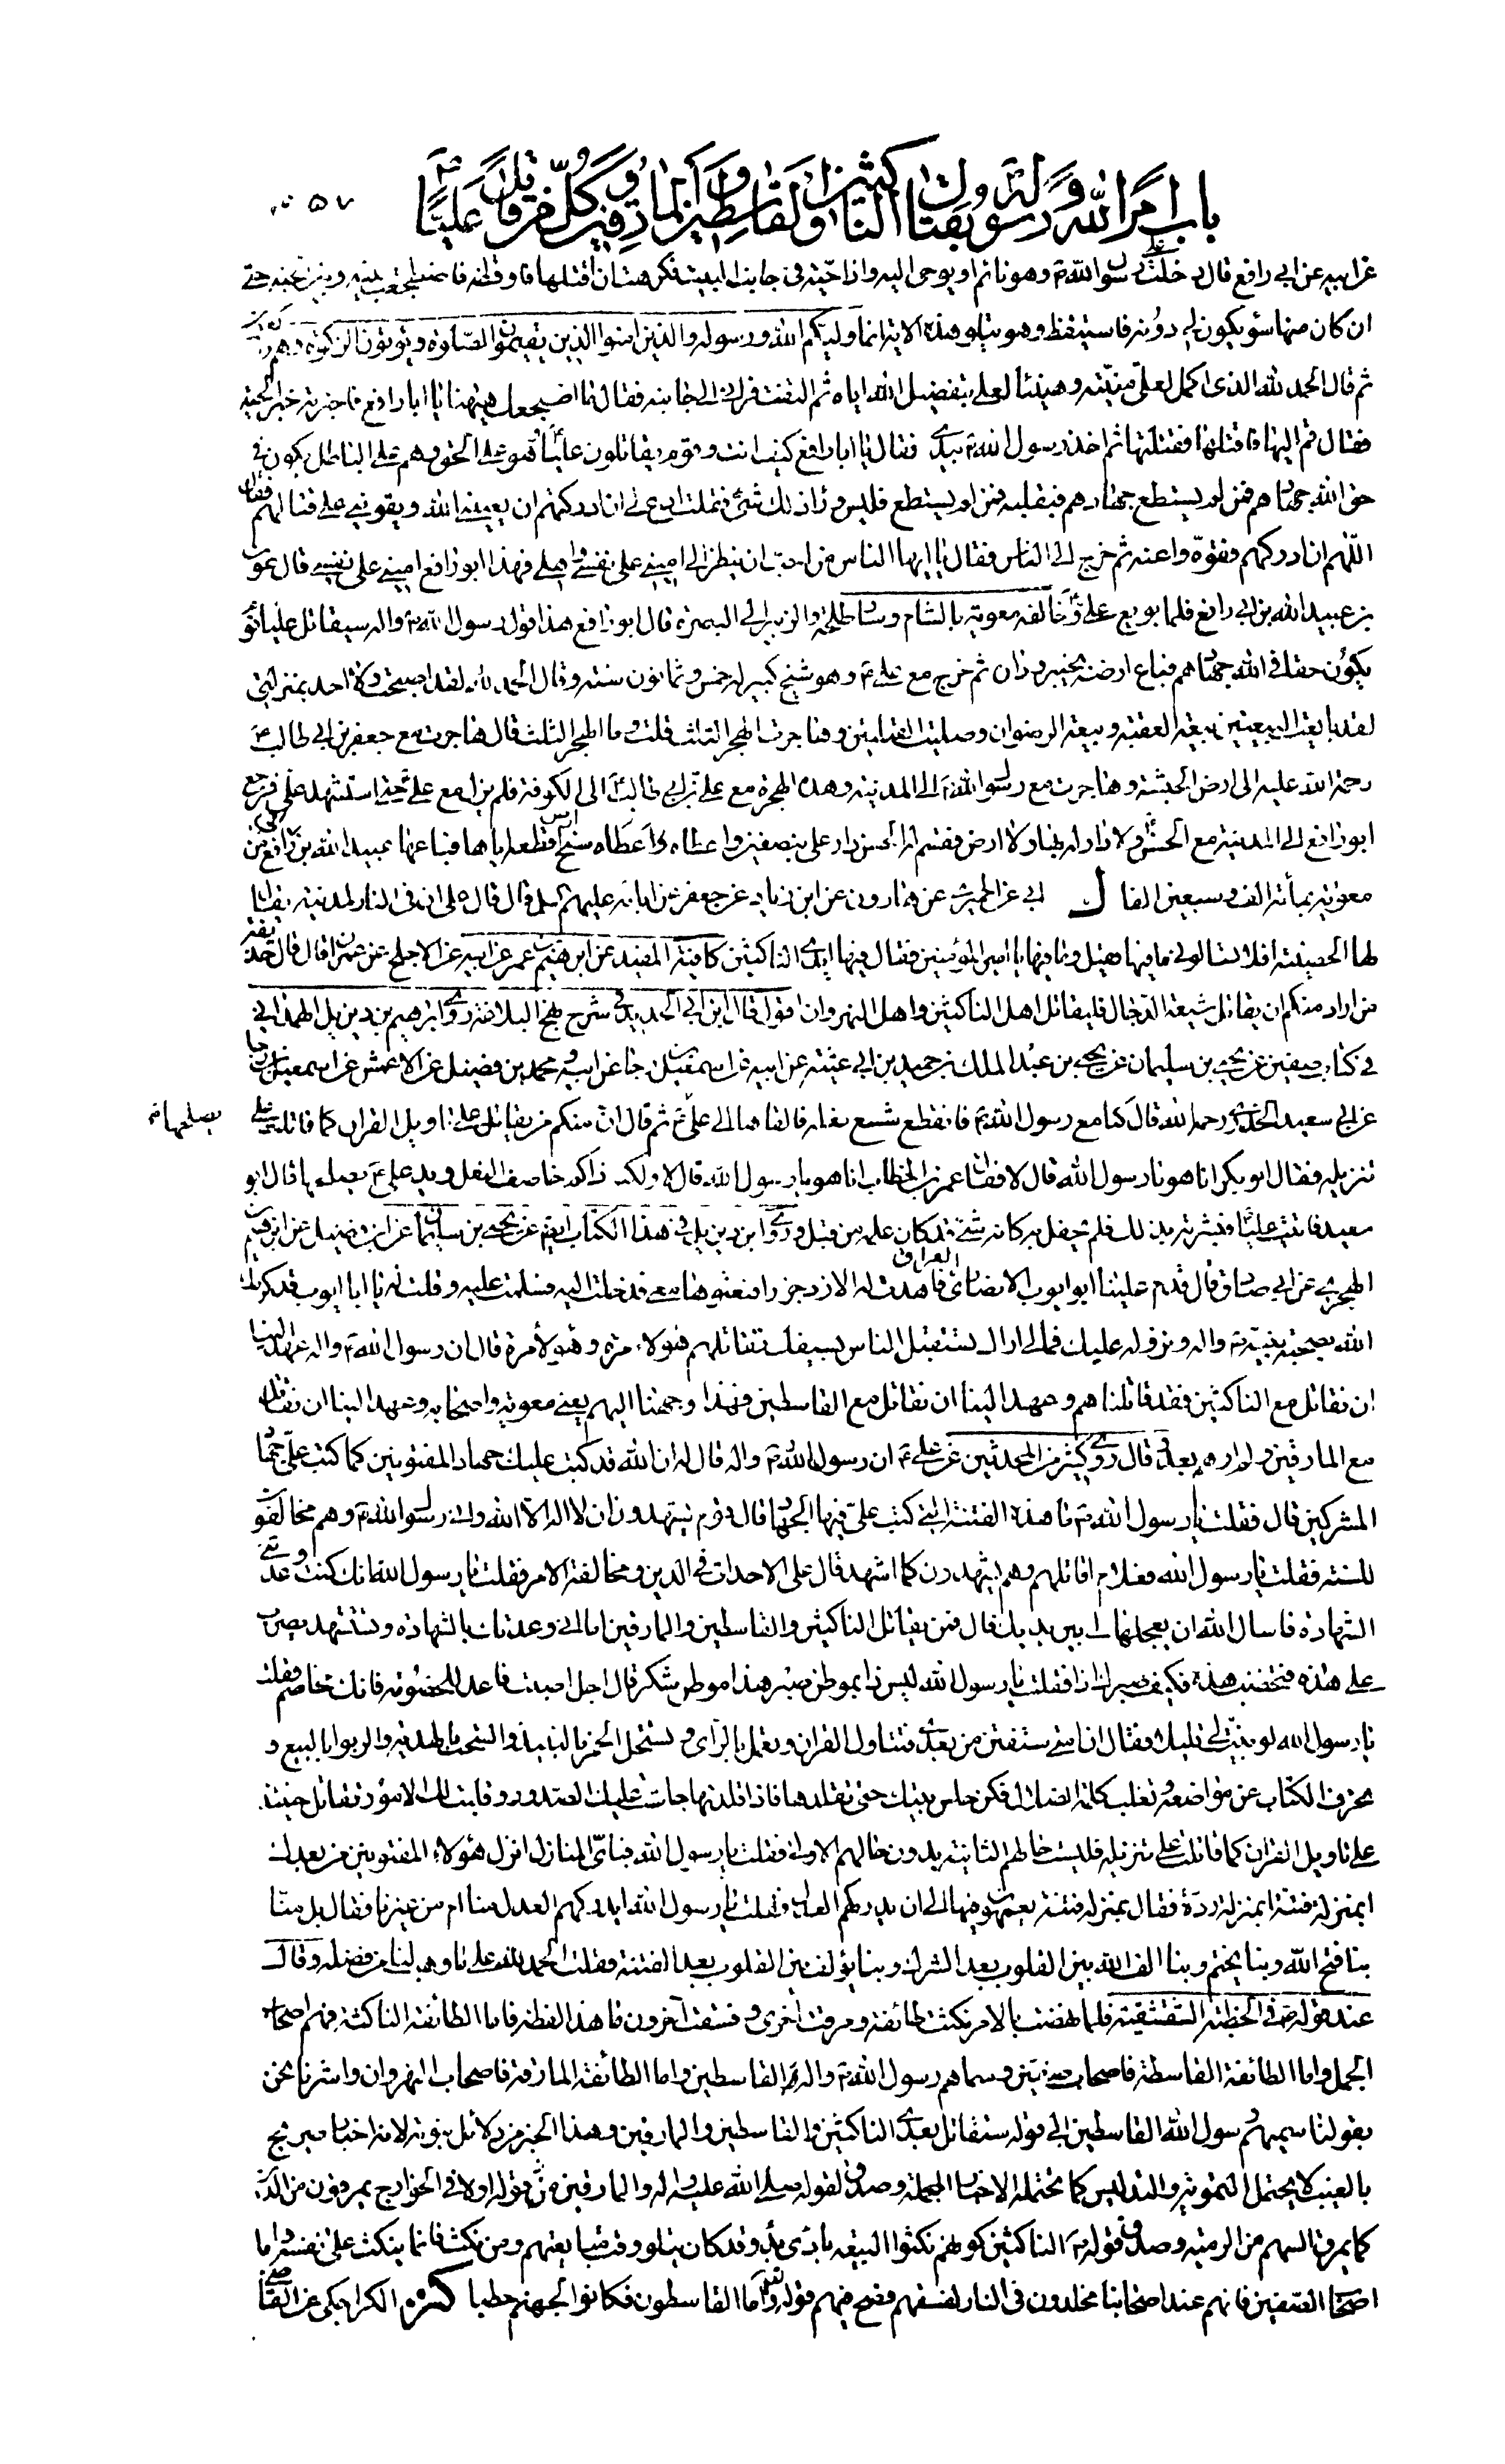 باب امر الله ورسوله بقتال الناكثين والقاسطين والمارقين وكل من قاتل عليا
عن ابيه عن ابي رافع قال دخلت على رسول الله ص وهو نائم او يوحى اليه واذا حية في جانب البيت فكرهت ان اقتلها فاوقظه فاضطجعت بينه وبين الحية حتى
ان كان منها سوء يكون لي دونه فاستيقظ وهو يتلو هذه الاية انما وليكم الله ورسوله والذين امنوا الذين يقيمون الصلوة ويؤتون الزكوة وهم راكعون
ثم قال الحمد لله الذي اكمل لعلي منيته وهنيئا لعلي بتفضيل الله اياه ثم التفت فراني الى جانبه فقال ما اضجعك هيهنا يا ابا رافع فاخبرته خبر الحية
فقال قم اليها فاقتلها فقتلتها ثم اخذ رسول الله ص بيدي فقال يا ابا رافع كيف انت وقوم يقاتلون عليا هو على الحق وهم على الباطل يكون في
حق الله جهادهم فمن لم يستطع جهادهم فبقلبه فمن لم يستطع فليس وراء ذلك شئ فقلت ادع لي ان ادركتهم ان يعينني الله ويقويني على قتالهم فقال
اللهم ان ادركهم فقوه واعنه ثم خرج الى الناس فقال يا ايها الناس من احب ان ينظر الى اميني على نفسي واهلي فهذا ابو رافع اميني على نفسي قال عون
بن عبيد الله بن ابي رافع فلما بويع علي ع وخالفه معوية بالشام وسار طلحة والزبير الى البصرة قال ابو رافع هذا قول رسول الله ص واله سيقاتل عليا قوم
يكون حقا في الله جهادهم فباع ارضه بخيبر وداره ثم خرج مع علي ع وهو شيخ كبير له خمس وثمانون سنة وقال الحمد لله لقد اصبحت ولا احد بمنزلتي
لقد بايعت البيعتين بيعة العقبة وبيعة الرضوان وصليت القبلتين وهاجرت الهجر الثلث قلت وما الهجر الثلث قال هاجرت مع جعفر بن ابي طالب
رحمة الله عليه الى ارض الحبشة وهاجرت مع رسول الله ص الى المدينة وهذه الهجرة مع علي بن ابي طالب ع الى الكوفة فلم يزل مع علي حتى استشهد علي فرجع
ابو رافع الى المدينة مع الحسن ع ولا دار له بها ولا ارض فقسم له الحسن دار علي بنصفين واعطاه سنح ارض اقطعه اياها فباعها عبيد الله بن ابي رافع من
معوية بمأة الف وسبعين الفا ل ابي عن الحميري عن هارون عن ابن زياد عن جعفر عن ابائه عليهم السلم قال قال علي ان في النار لمدينة يقال
لها الحصينة افلا تسألوني ما فيها فقيل وما فيها يا امير المؤمنين فقال فيها ايدي الناكثين كافية المفيد عن ابرهيم بن عمر عن ابيه عن الاجلح عن عمران قال قال حذيفة
من اراد منكم ان يقاتل شيعة الدجال فليقاتل اهل الناكثين واهل النهروان اقول قال ابن ابي الحديد في شرح نهج البلاغة روى ابرهيم بن ديزيل الهمداني
في كتاب صفين عن يحيى بن سليمان عن يحيى بن عبد الملك بن حميد بن ابي عتبة عن ابيه عن اسمعيل بن رجا عن ابيه ومحمد بن فضيل عن الاعمش عن اسمعيل بن رجا
عن ابي سعيد الخدري رحمه الله قال كنا مع رسول الله ص فانقطع شسع نعله فالقاها الى علي ع يصلحها ثم قال ان منكم من يقاتل على تاويل القران كما قاتلت على
تنزيله فقال ابو بكر انا هو يا رسول الله قال لا فقال عمر بن الخطاب انا هو يا رسول الله قال لا ولكنه ذاكم خاصف النعل ويد علي ع يصلحها قال ابو
سعيد فاتيت عليا فبشرته بذلك فلم يحفل به كانه شئ قد كان علمه من قبل وروى ابن ديزيل في هذا الكتاب ايضا عن يحيى بن سليمان عن ابن فضيل عن ابرهيم
الهجري عن ابي صادق قال قدم علينا ابو ايوب الانصاري العراق فاهدت له الازد جزرا فبعثوها معي فدخلت اليه فسلمت عليه وقلت له يا ابا ايوب قد كرمك
الله بصحبة نبيه ص واله ونزوله عليك فمالي اراك تستقبل الناس بسيفك تقاتلهم هؤلاء مرة وهؤلاء مرة قال ان رسول الله ص واله عهد الينا
ان نقاتل مع الناكثين فقد قاتلناهم وعهد الينا ان نقاتل مع القاسطين فهذا وجهنا اليهم يعني معوية واصحابه وعهد الينا ان نقاتل
مع المارقين ولم ارهم بعد قال وروى كثير من المحدثين عن علي ع ان رسول الله ص واله قال له ان الله قد كتب عليك جهاد المفتونين كما كتب علي جهاد
المشركين قال فقلت يا رسول الله ص ما هذه الفتنة التي كتب علي فيها الجهاد قال قوم يشهدون ان لا اله الا الله واني رسول الله ص وهم مخالفون
للسنة فقلت يا رسول الله فعلام اقاتلهم وهم يشهدون كما اشهد قال على الاحداث في الدين ومخالفة الامر فقلت يا رسول الله انك كنت وعدتني
الشهادة فاسال الله ان يعجلها لي بين يديك قال فمن يقاتل الناكثين والقاسطين والمارقين اما اني وعدتك بالشهادة وتستشهد يضرب
على هذه فتخضب هذه فكيف صبرك اذا فقلت يا رسول الله ليس ذا بموطن صبر هذا موطن شكر قال اجل اصبت فاعد للخصومة فانك مخاصم فقلت
يا رسول الله لو بينت لي قليلا فقال ان امتي ستفتن من بعدي فتتاول القران وتعمل بالراي وتستحل الخمر بالنبيذ والسحت بالهدية والربوا بالبيع و
تحرف الكتاب عن مواضعه وتغلب كلمة الضلال فكن جليس بيتك حتى تقلدها فاذا قلدتها جاشت عليك الصدور وقلبت لك الامور تقاتل حينئذ
على تاويل القران كما قاتلت على تنزيله فليست حالهم الثانية بدون حالهم الاولى فقلت يا رسول الله فباي المنازل انزل هؤلاء المفتونين من بعدك
ابمنزلة فتنة ام بمنزلة ردة فقال بمنزلة فتنة يعمهون فيها الى ان يدركهم العدل فقلت يا رسول الله ايدركهم العدل منا ام من غيرنا فقال بل منا
بنا فتح الله وبنا يختم وبنا الف الله بين القلوب بعد الشرك وبنا يؤلف بين القلوب بعد الفتنة فقلت الحمد لله على ما وهب لنا من فضله وقال
عند قوله ع في الخطبة الشقشقية فلما نهضت بالامر نكثت طائفة ومرقت اخرى وفسقت آخرون ما هذا لفظه فاما الطائفة الناكثة فهم اصحاب
الجمل واما الطائفة القاسطة فاصحاب صفين وسماهم رسول الله ص واله القاسطين واما الطائفة المارقة فاصحاب النهروان واشرنا نحن
بقولنا سميهم رسول الله القاسطين الى قوله ستقاتل بعدي الناكثين والقاسطين والمارقين وهذا الخبر من دلائل نبوته لانه اخبار صريح
بالغيب لا يحتمل التمويه والتدليس كما تحتمله الاخبار المجملة وصدق قوله صلى الله عليه واله والمارقين قوله اولا في الخوارج يمرقون من الدين
كما يمرق السهم من الرمية وصدق قوله ص الناكثين كونهم نكثوا البيعة بادي بدء وقد كان يتلو وقت مبايعتهم ومن نكث فانما ينكث على نفسه واما
اصحاب الصفين فانهم عند اصحابنا مخلدون في النار لفسقهم فصح فيهم قوله تعالى واما القاسطون فكانوا لجهنم حطبا كنز الكراجكي عن القاضي